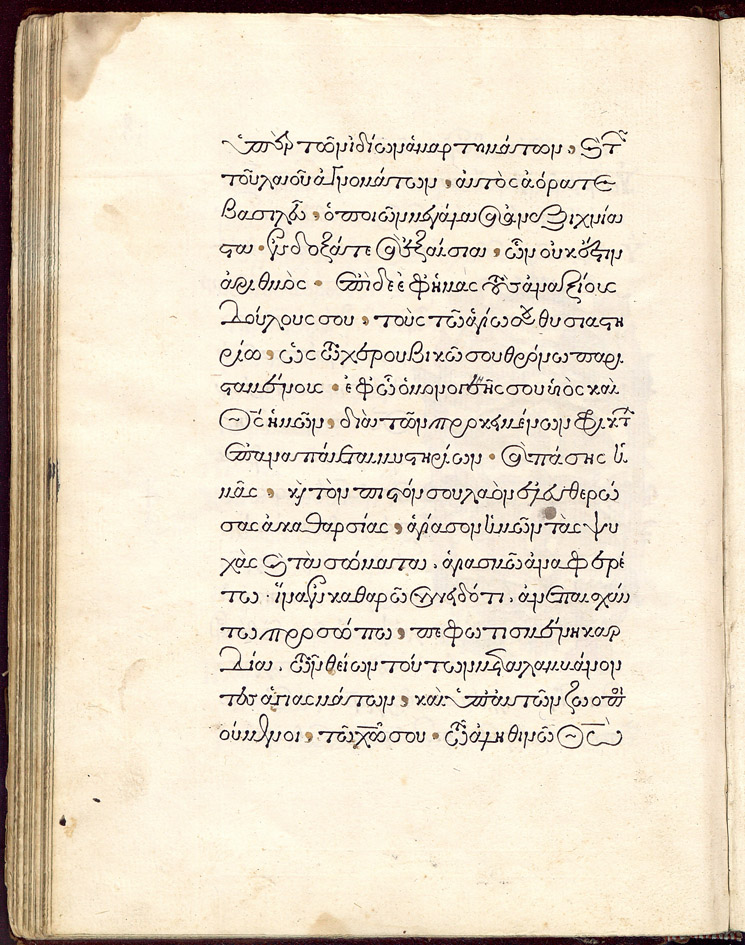 ὑπὲρ τῶν ἰδίων ἁμαρτημάτων, καὶ τῶν
τοῦ λαοῦ ἀγνοημάτων, αὐτὸς ἀόρατε
βασιλεῦ, ὁ ποιῶν μεγάλα καὶ ἀνεξιχνία
στα · ἔνδοξά τε καὶ ἐξαίσια, ὧν οὐκ ἔστιν
ἀριθμὸς · ἔπιδε ἐφ ἡμᾶς τοὺς ἀναξίους
δούλους σου, τοὺς τῶ ἁγίω σου θυσιαστη
ρίω, ὡς τῶ χερουβικῶ σου θρόνω παρι
σταμένους · ἐφ ὧ ὁ μονογενής σου υἱὸς καὶ
θς ἡμῶν, διὰ τῶν προκειμένων φρικτῶν
ἐπαναπαύεται μυστηρίων · καὶ πάσης ἡ
μᾶς, καὶ τὸν πιστόν σου λαὸν ἐλευθερώ
σας ἀκαθαρσίας, ἁγίασον ἡμῶν τὰς ψυ
χὰς καὶ τὰ σώματα, ἁγιασμῶ ἀναφαιρέ
τω · ἵνα ἐν καθαρῶ συνειδότι, ἀνεπαισχύν
τω προσώπω, πεφωτισμένη καρ
δία, τῶν θείων τούτων μεταλαμβάνον
τες ἁγιασμάτων, καὶ ὑπ αὐτῶν ζωοποι
ούμενοι, τῶ χῶ σου · τῶ ἀληθινῶ θῶ